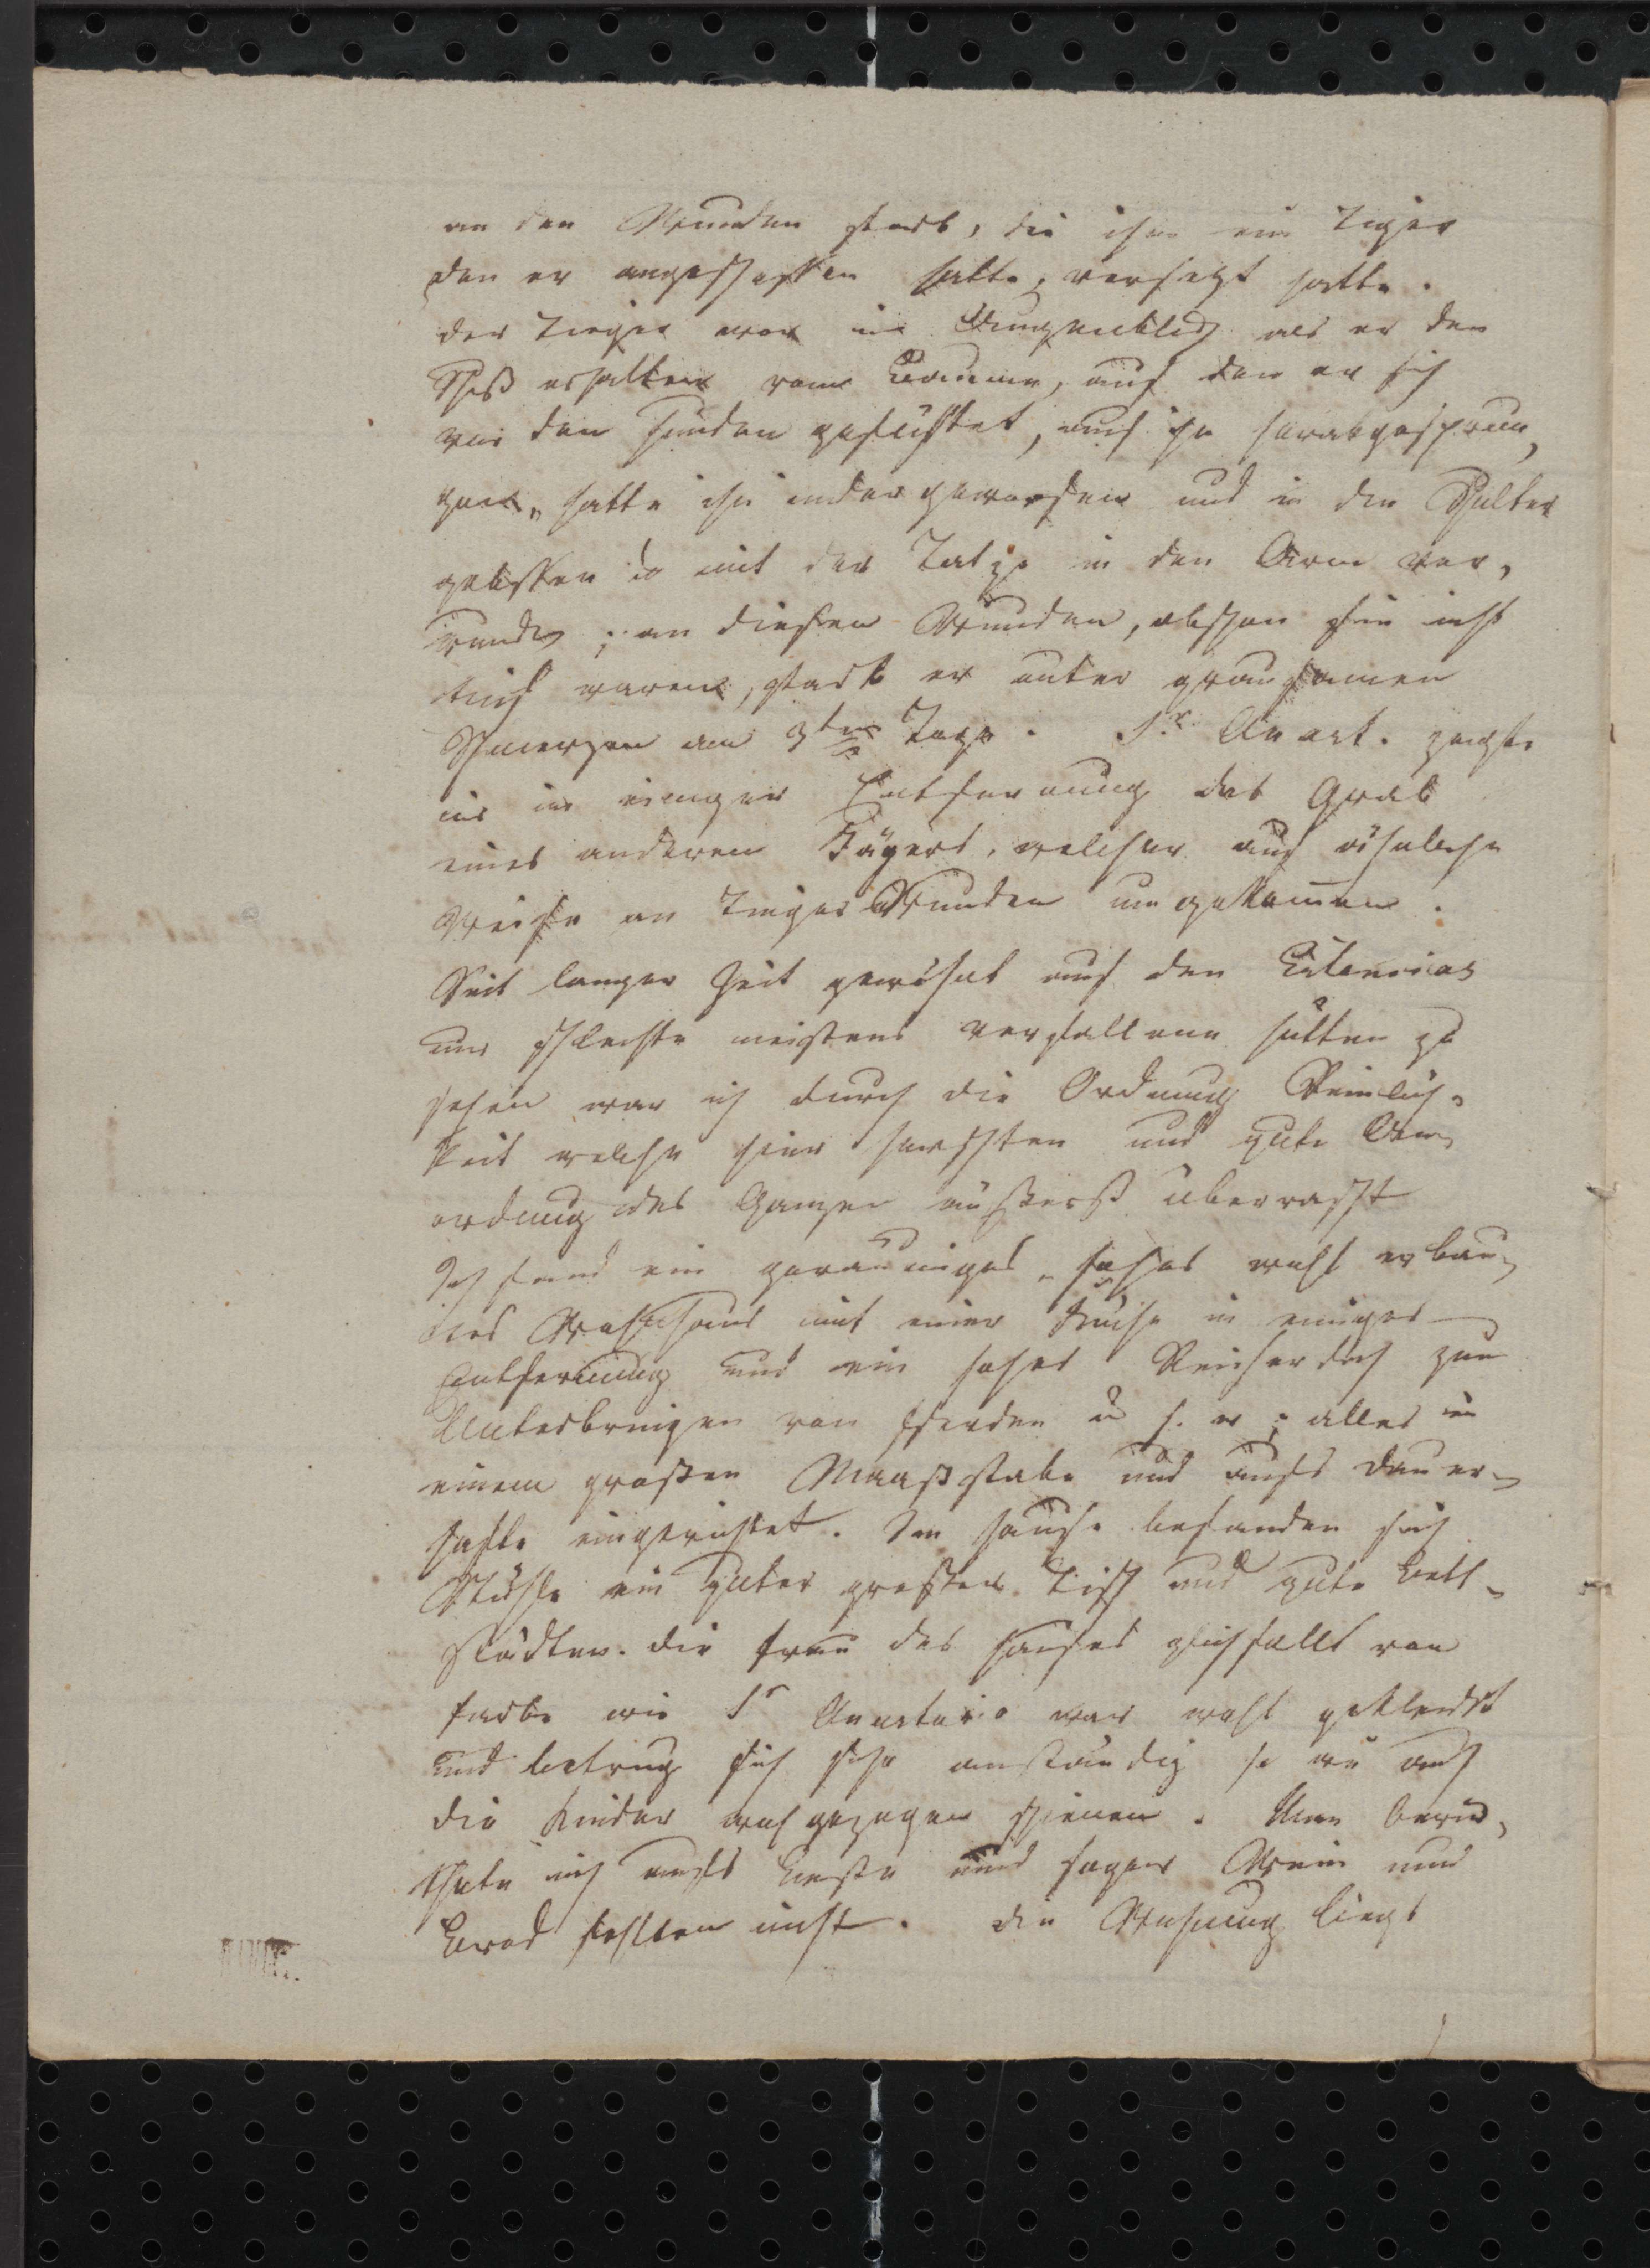 an den Wunden starb, die ihm ein Tiger
den er angeschossen hatte, versetzt hatte.
der Tieger war im Augenblick als er den
Schuß erhalten vom Baume, auf den er sich
vor den Hunden geflüchtet, auf ihn herabgesprun,
gen, hatte ihn niedergeworfen und in die Schulter
gebissen u mit der Tatze in den Arm ver,
wundet; an diesen Wunden, obschon sie nicht
tief waren, starb er unter grausamen
Schmerzen am 3ten Tage. Sr Anast. zeigte
mir in einiger Entfernung das Grab
eines anderen Jägers, welcher auf ähnliche
Weise an Tieger Wunden umgekommen.
Seit langer Zeit gewöhnt auf den Estancias
nur schlechte meistens verfallene Hütten zu
sehen war ich durch die Ordnung Reinlich-
keit welche hier herrschten und gute An-
ordnung des Ganzen äußerst überrascht
Ich fand ein geräumiges, hohes wohl erbau-
tes Wohnhaus mit einer Küche in einiger
Entfernung und ein hohes dach zum
Unterbringen von Pferden u s. w; alles in
einem großen Maaßstabe und aufs dauer-
hafte eingerichtet. Im Hause befanden sich
Stühle ein guter großer Tisch und gute Bett-
städten. die Frau des Hauses gleichfalls von
Farbe wie Sr Anastasio war wohl gekleidet
und betrug sich sehr anständig so wie auch
die Kinder wohlgezogen schienen. Man bewir,
thete mich aufs beste und sogar Wein und
Brod fehlten nicht. die Wohnung liegt